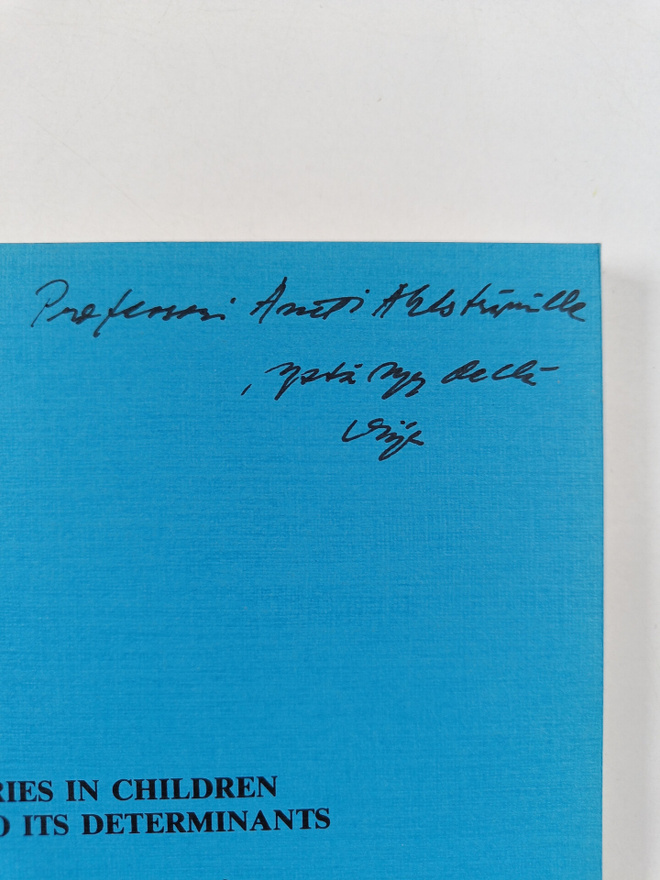 Professori Antti Ahlströmille
ystävyydellä
RIES IN CHILDREN
ITS DETERMINANTS